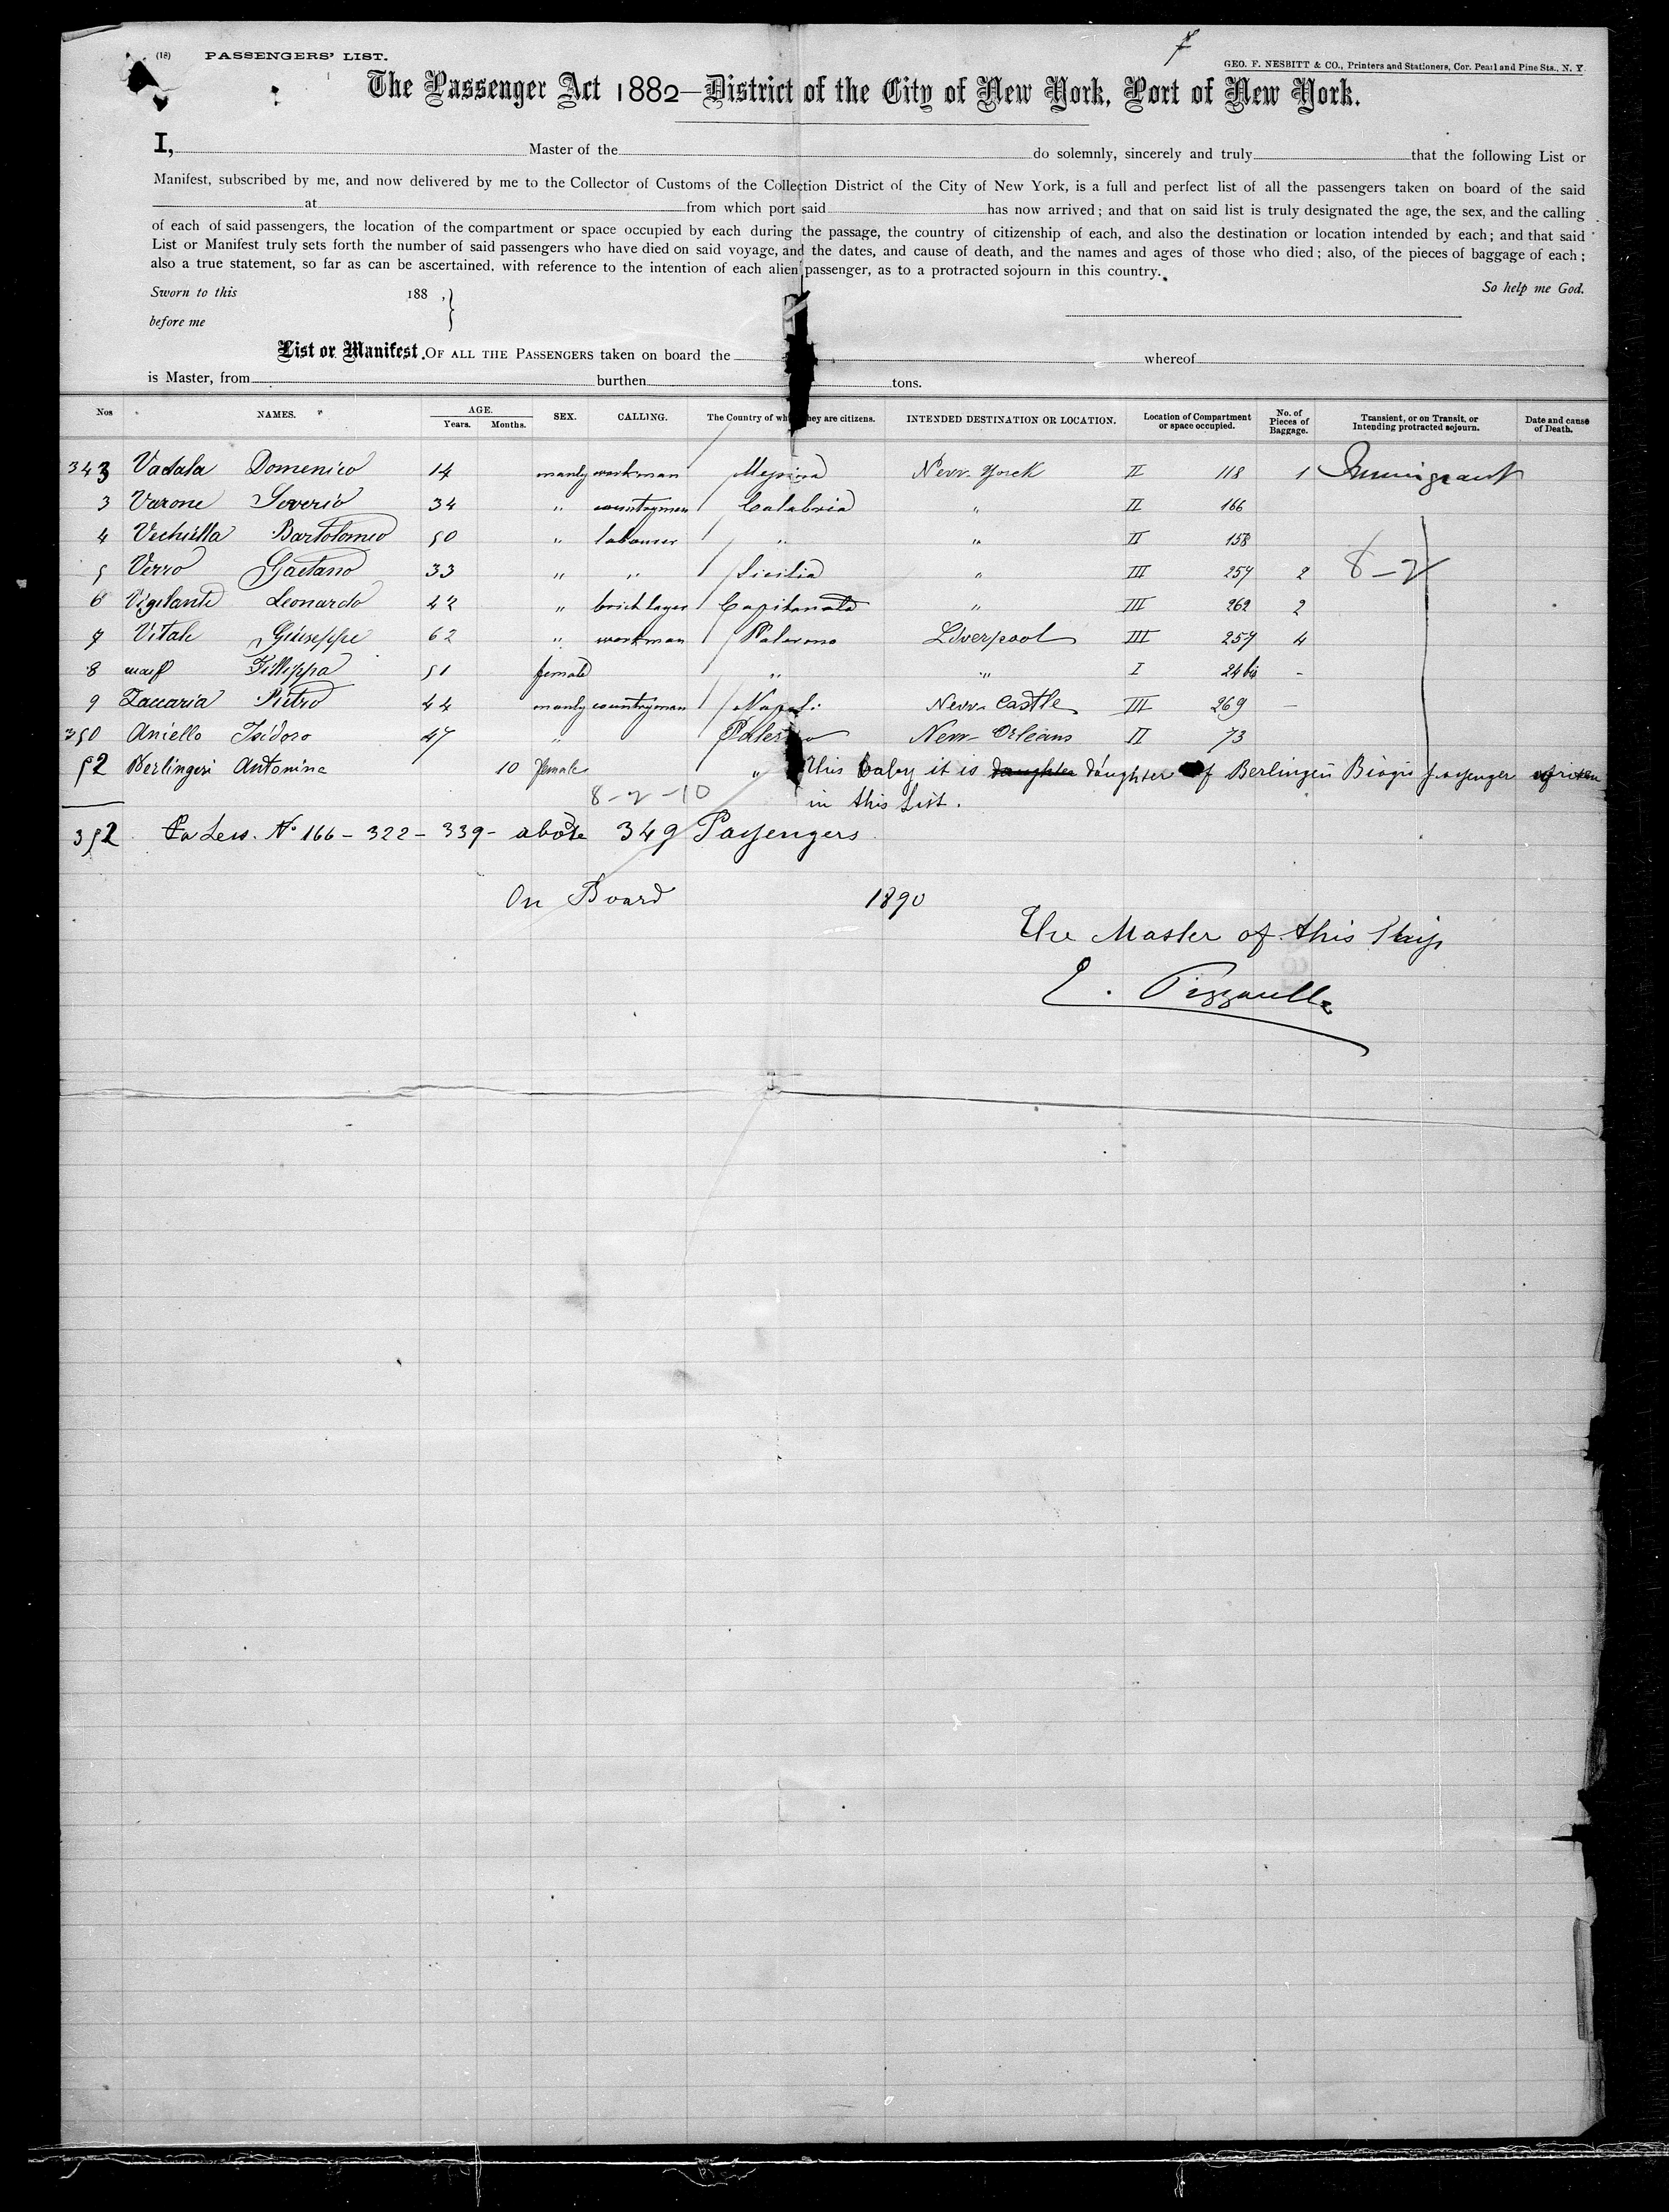 (18) PASSENGERS' LIST.
GEO. F. NESBITT & CO., Printers and Stationers, Cor. Pearl and Pine Sts., N. Y.
The Passenger Act 1882—District of the City of New York, Port of New York.
I, Master of the do solemnly, sincerely and truly that the following List or
Manifest, subscribed by me, and now delivered by me to the Collector of Customs of the Collection District of the City of New York, is a full and perfect list of all the passengers taken on board of the said
at from which port said has now arrived; and that on said list is truly designated the age, the sex, and the calling
of each of said passengers, the location of the compartment or space occupied by each during the passage, the country of citizenship of each, and also the destination or location intended by each; and that said
List or Manifest truly sets forth the number of said passengers who have died on said voyage, and the dates, and cause of death, and the names and ages of those who died; also, of the pieces of baggage of each;
also a true statement, so far as can be ascertained, with reference to the intention of each alien passenger, as to a protracted sojourn in this country.
Sworn to this 188 , So help me God.
before me
List or Manifest, OF ALL THE PASSENGERS taken on board the whereof
is Master, from burthen tons.
Nos NAMES. AGE. Years. Months. SEX. CALLING. The Country of wh hey are citizens. INTENDED DESTINATION OR LOCATION. Location of Compartment or space occupied. No. of Pieces of Baggage. Transient, or on Transit, or Intending protracted sojourn. Date and cause of Death.
343 Vadala Domenico 14 manly workman Messina New-Yorck II 118 1 Immigrant
3 Varone Severio 34 " countryman Calabria " II 166
4 Bartolomeo 50 " labourer " " II 158
5 Verro Gaetano 33 " " Sicilia " III 257 2 8-2
6 Vigilante Leonardo 42 " bricklayer Capitanata " III 262 2
7 Vitale Giuseppe 62 " workman Palermo Liverpool III 257 4
8 Fillippa 51 female " " I 24 bis -
9 Zaccaria Pietro 44 manly countryman Napoli New-Castle III 269 -
350 Aniello Isidoro 47 " Palermo New-Orleans II 73
52 Berlingeri Antonina 10 female " this baby it is daughter daughter of Berlingeri Biagio passenger
8-2-10 in this list.
352 Less. No 166-322-339- above 349 Passengers
On Board 1890
The Master of this Ship
E.